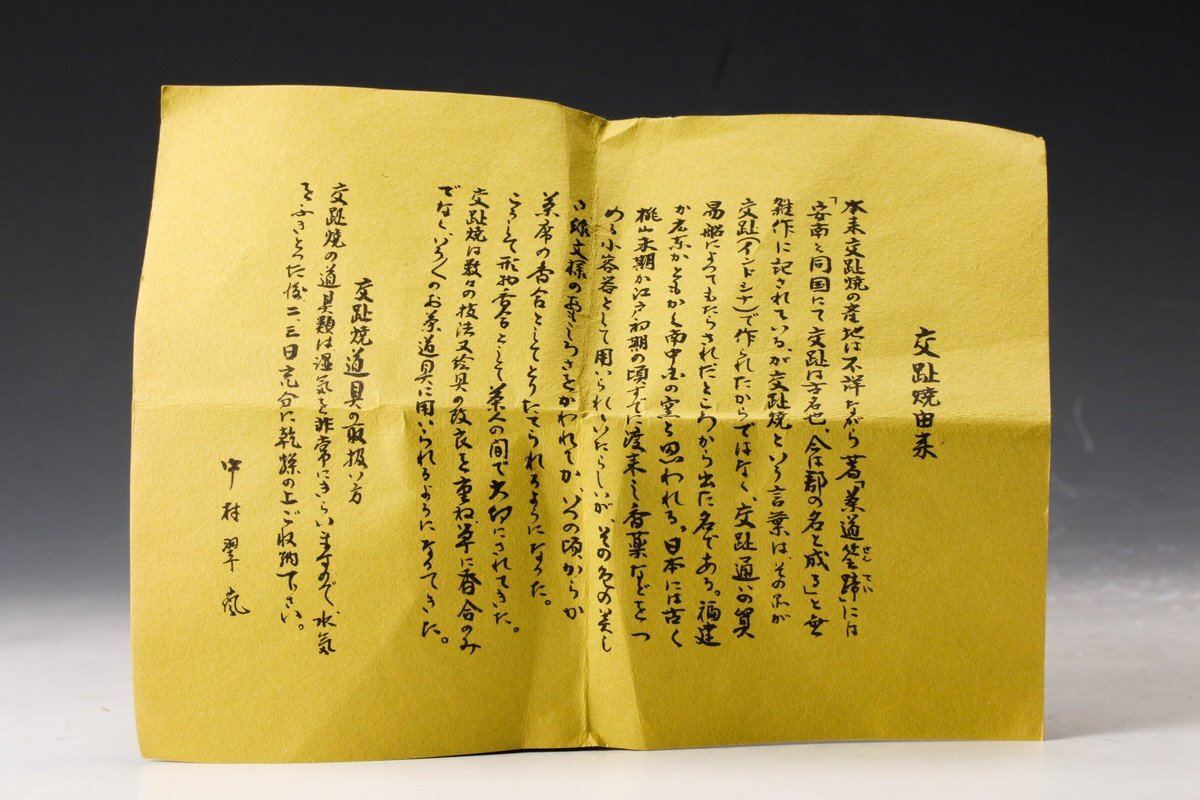 交趾焼由来
本来交趾焼の産地は不詳ながら著「茶道筌蹄」には
せんてい
「安南と同国にて交趾は古名也、今は郡の名と成る」と
雑作に記されている、が交趾焼という言葉は、その
交趾(インドシナ)で作られたからではなく、交趾通いの貿
易船によってもたらされたところから出た名である。福建
か広東かともかく南中国の窯と思われる。日本には古く
桃山末期か江戸初期の頃すでに渡来し香薬などをつ
める小容器として用いられていたらしいが、その色の美し
さ
文様のおもしろさをかわれてか、いつの頃からか
茶席の香合としてとりたてられるようになった。
こうして形物香合として茶人の間で大切にされてきた。
交趾焼は数々の技法又絵具の改良を重ね、単に香合のみ
でなく、いろ〱のお茶道具に用いられるようになってきた。
交趾焼道具の取扱い方
交趾焼の道具類は湿気を非常にきらいますので、水気
をふきとった後二、三日充分に乾燥の上ご収納下さい。
中村翠嵐